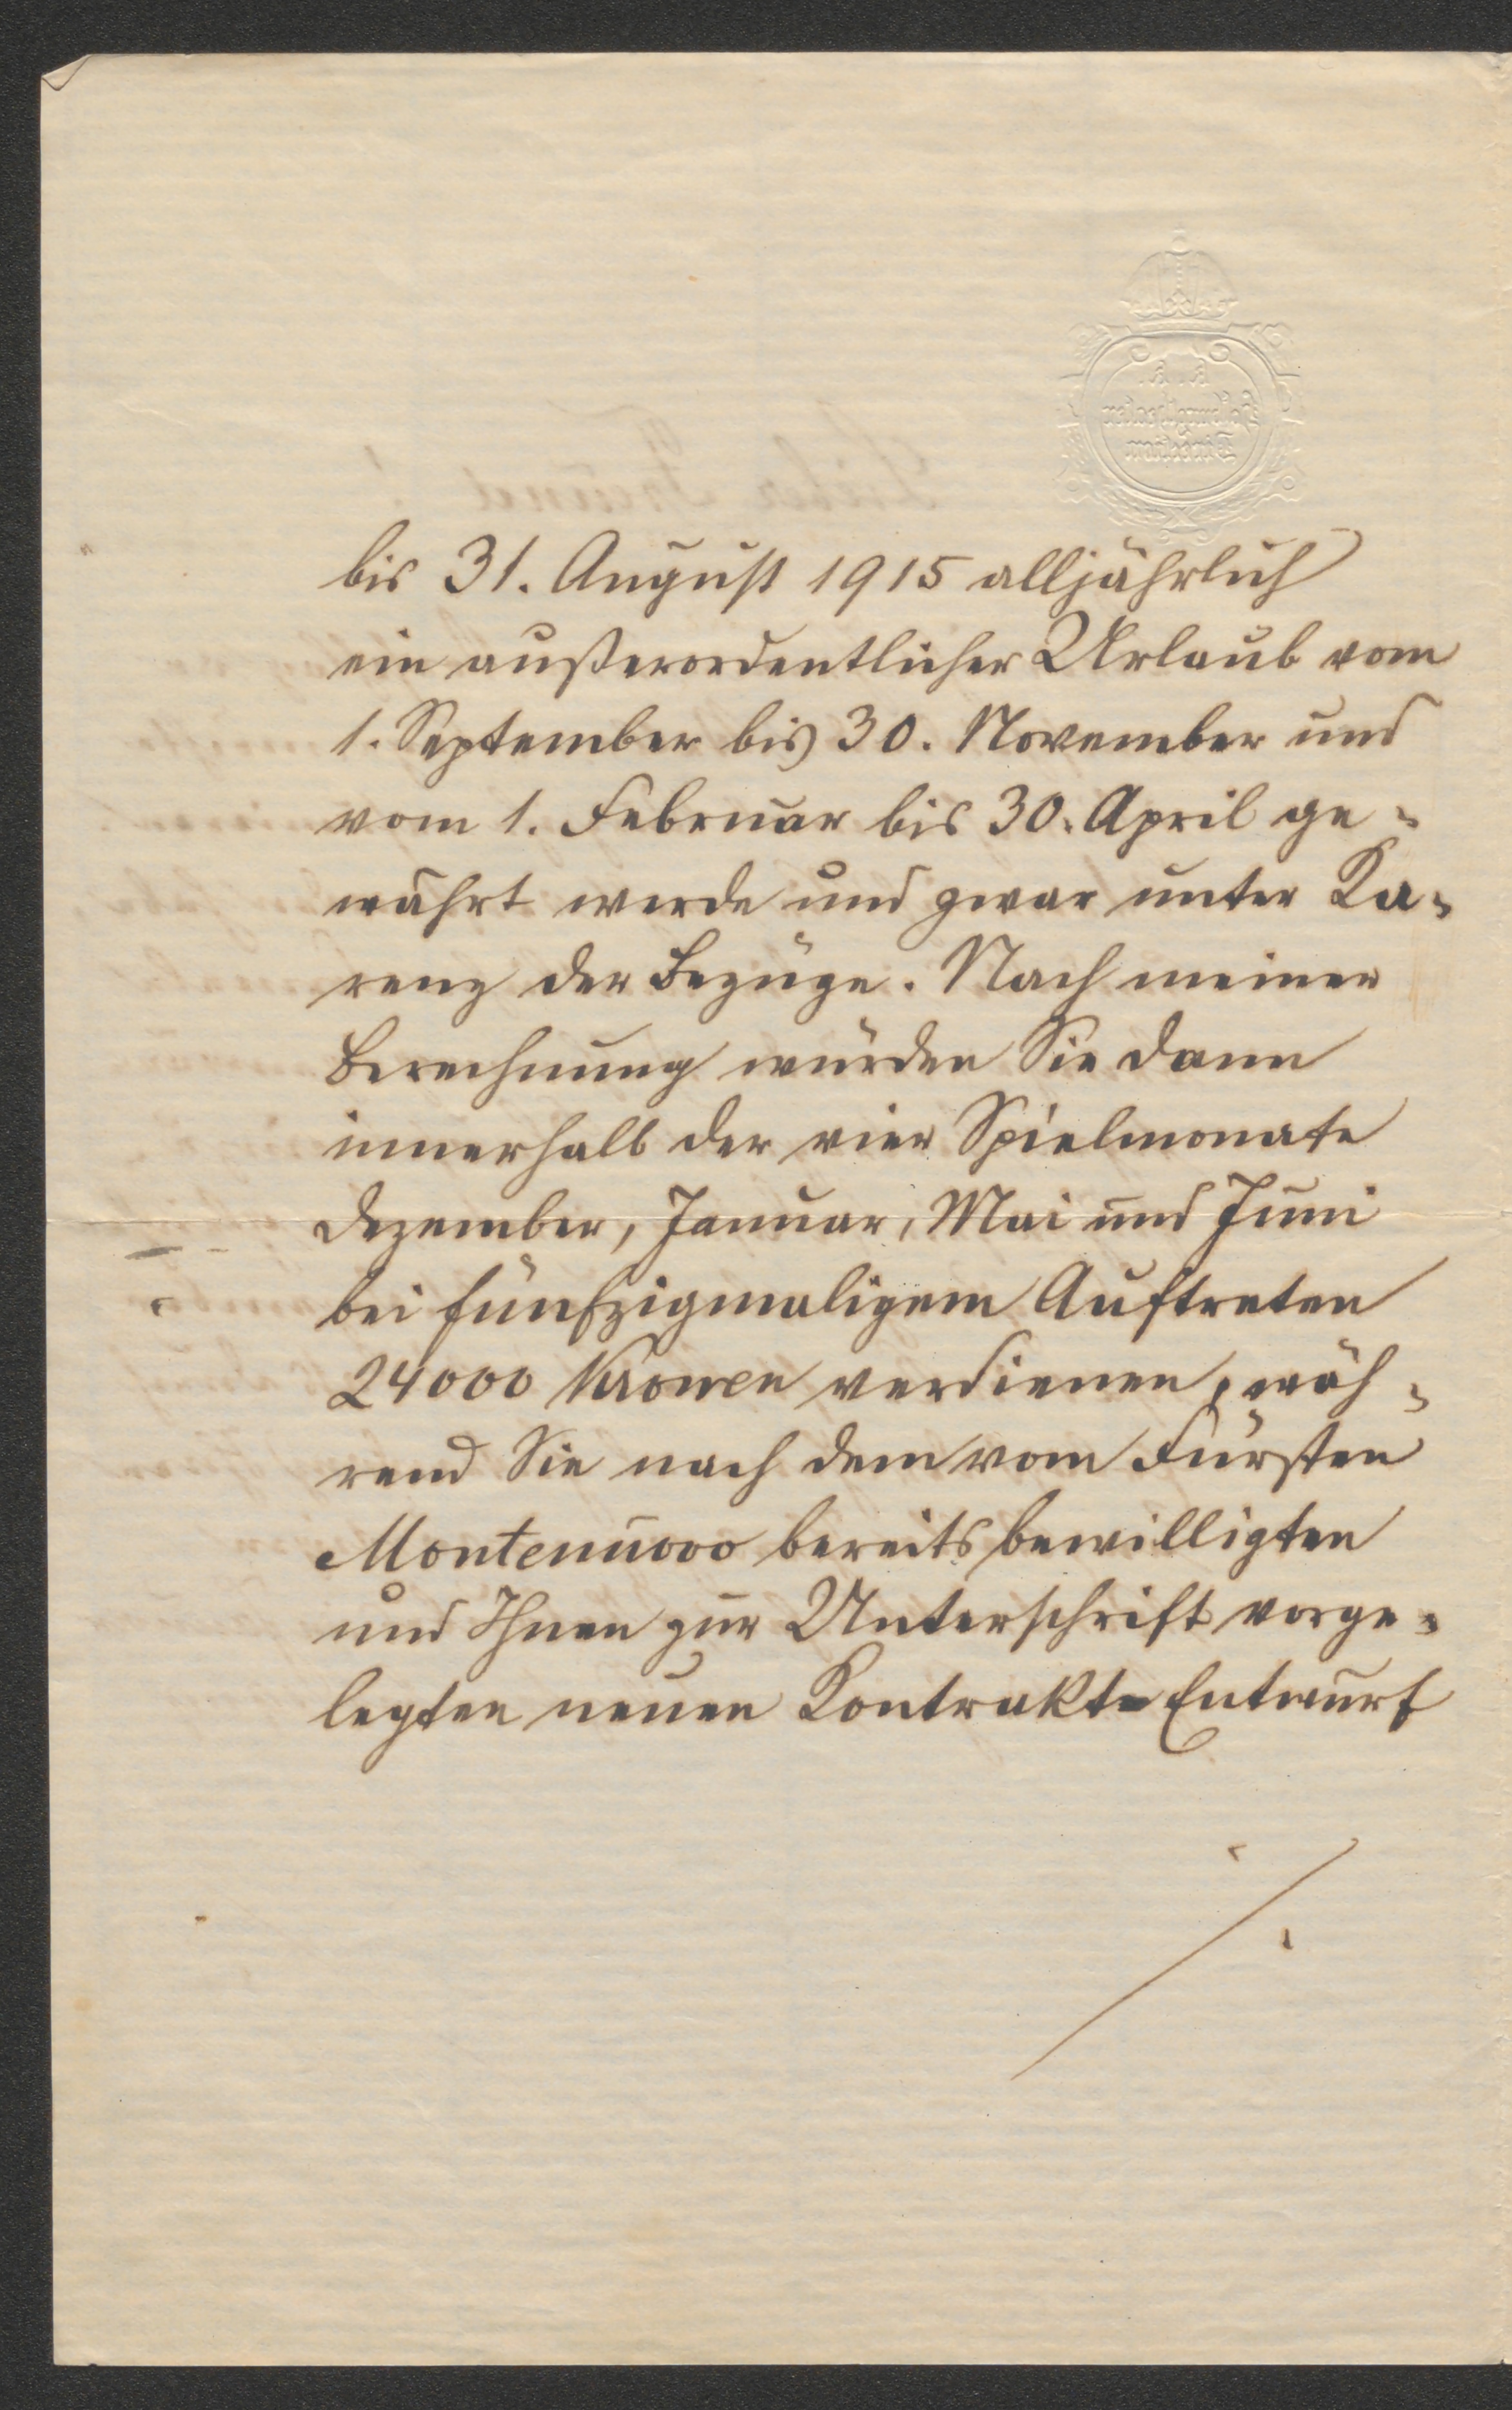 bis 31. August 1915 alljährlich
ein außerordentlicher Urlaub vom
1. September bis 30. November und
vom 1. Februar bis 30. April ge-
währt werde und zwar unter Ka-
renz der Bezüge. Nach meiner
Berechnung würden Sie dann
innerhalb der vier Spielmonate
Dezember, Januar, Mai und Juni
bei fünfzigmaligem Auftreten
24000 Kronen verdienen, wäh-
rend Sie nach dem vom Fürsten
Montenuovo bereits bewilligten
und Ihnen zur Unterschrift vorge-
legten neuen Kontrakt-Entwurf
./.